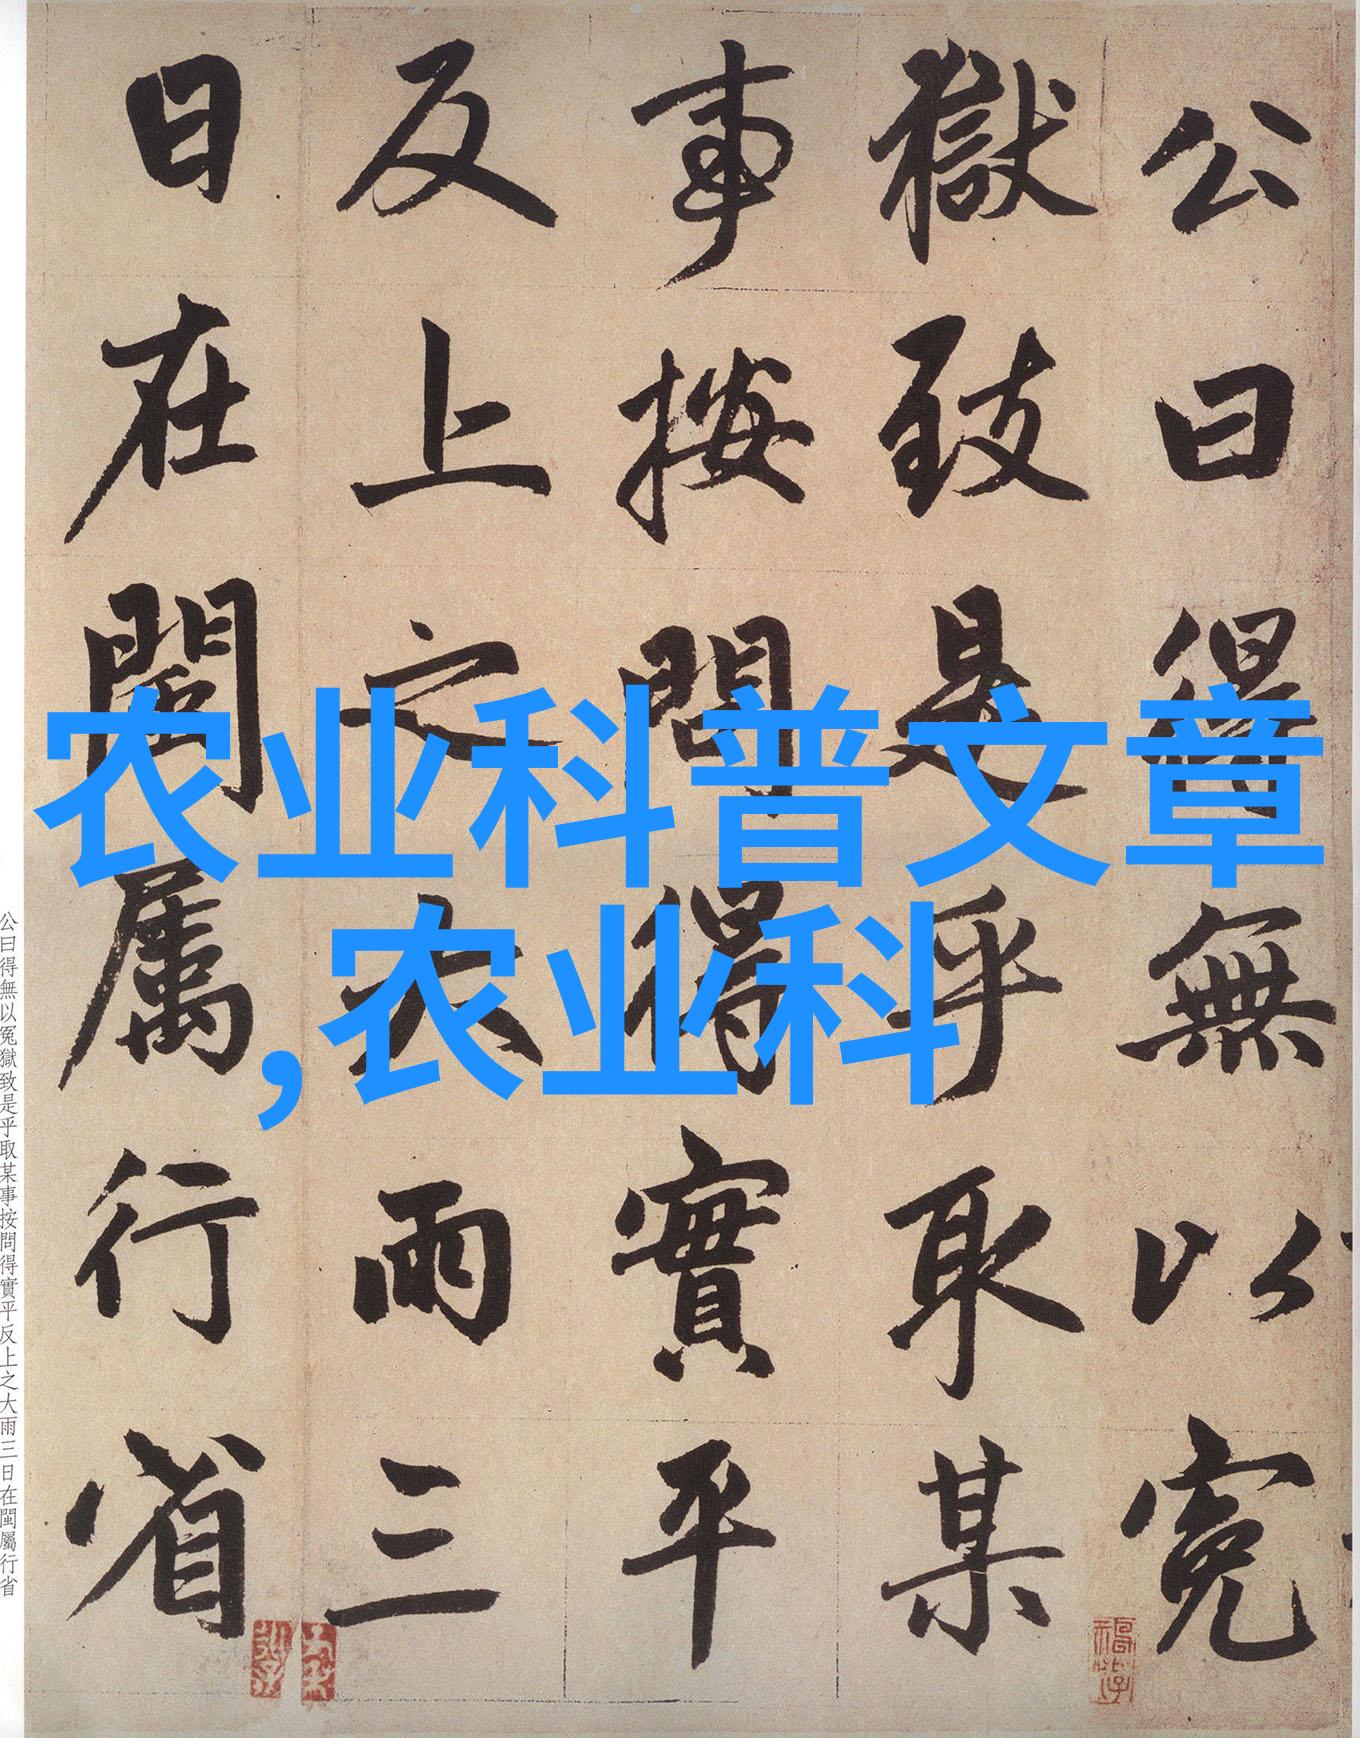 公曰得無以冤
獄致是乎取某
事按問得實平
反上之大雨三
日在閩屬行省
农业科普文章
,农业科
公曰得無以冤獄致是乎取某事按問得實平反上之大雨三日在閩屬行省